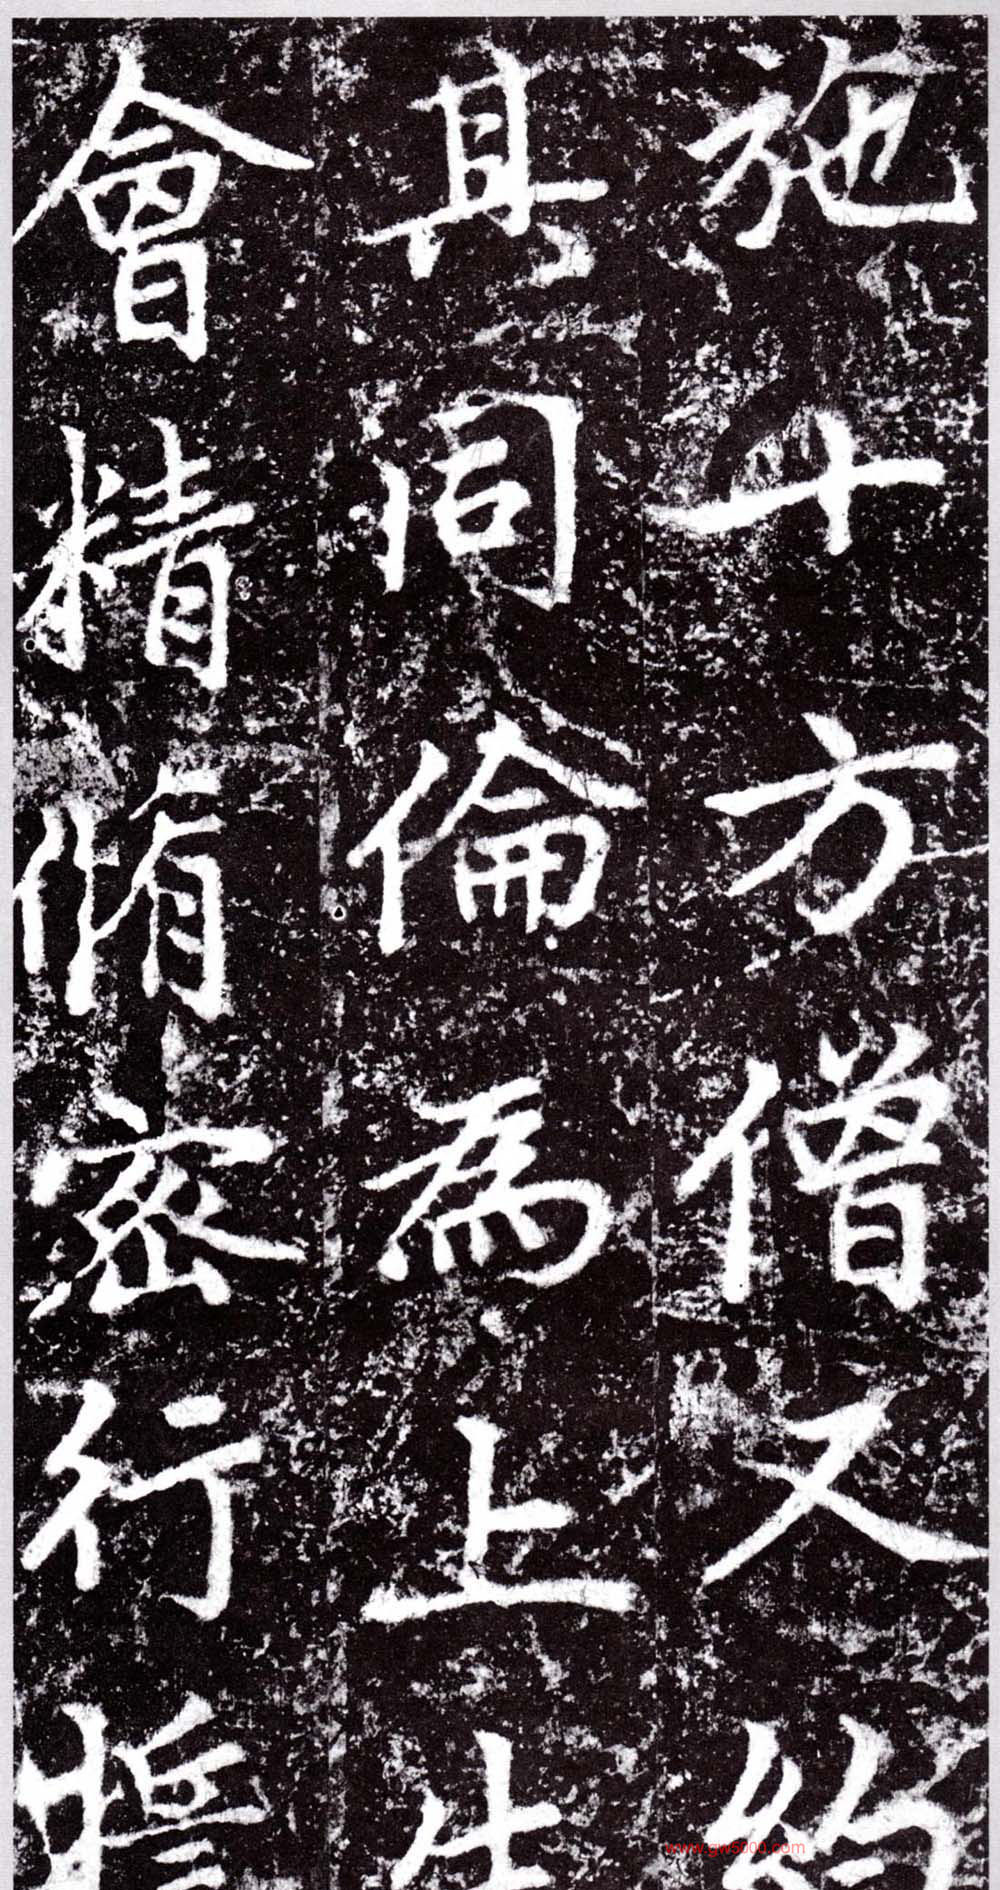 施十方僧又約
其同倫為上生
會精脩密行
www.gw5000.com